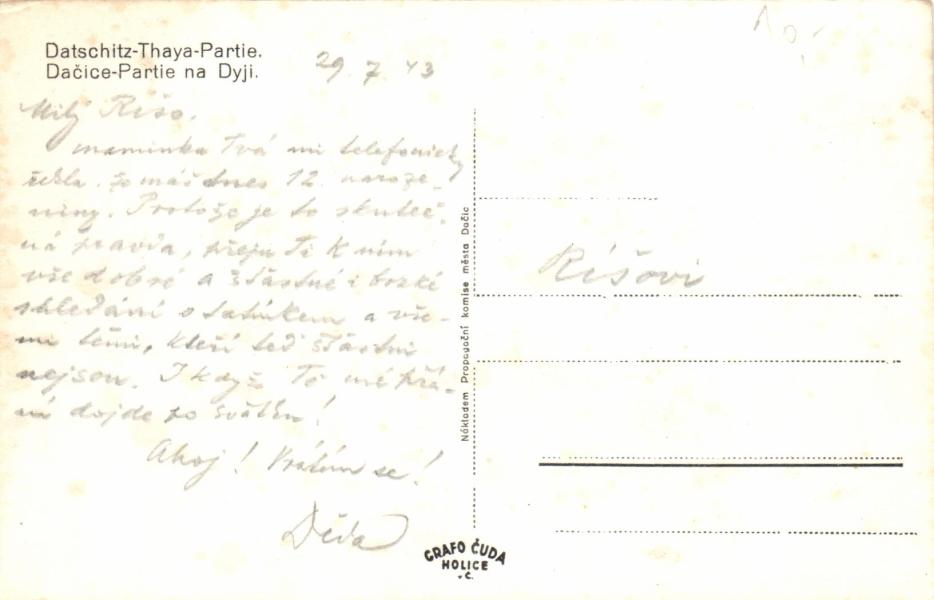 Datschitz-Thaya-Partie.
Dačice-Partie na Dyji.
29 7 43
Milý Ríšo.
maminka Tvá mi telefonicky
řekla, že máš dnes 12. naroze-
niny. Protože je to skuteč-
ná pravda, přeju Ti k nim
vše dobré a šťastné i brzké
shledání s tatínkem a vše-
mi těmi, kteří teď šťastni
nejsou. I když To mé přá-
ní dojde po svátku!
Ahoj! Vrátím se!
Děda
Nákladem Propagační komise města Dačic
Ríšovi
GRAFO ČUDA
HOLICE
v Č.